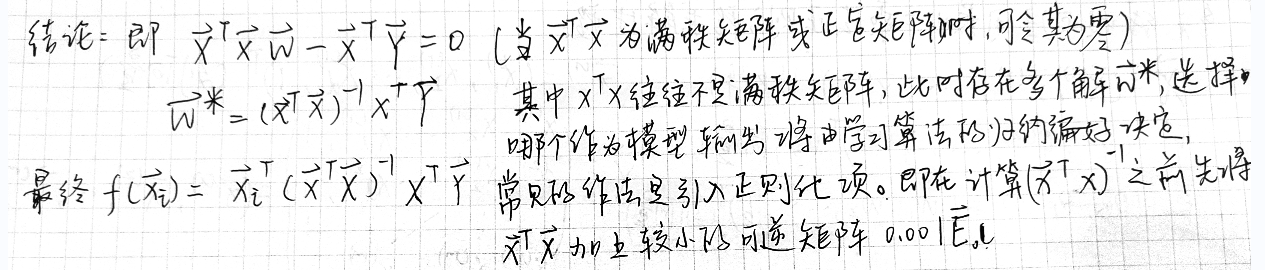 结论: 即 X⃗ᵀX⃗w⃗ - X⃗ᵀY⃗ = 0 (当 X⃗ᵀX⃗ 为满秩矩阵或正定矩阵时, 可令其为零)
w⃗* = (X⃗ᵀX⃗)⁻¹XᵀY⃗
其中 XᵀX 往往不是满秩矩阵, 此时存在多个解 w⃗*, 选择
哪个作为模型输出将由学习算法的归纳偏好决定,
最终 f(x⃗ᵢ) = x⃗ᵢᵀ(X⃗ᵀX⃗)⁻¹XᵀY⃗
常见的作法是引入正则化项。即在计算(X⃗ᵀX)⁻¹之前先将
X⃗ᵀX⃗ 加上较小的可逆矩阵 0.001E⃗